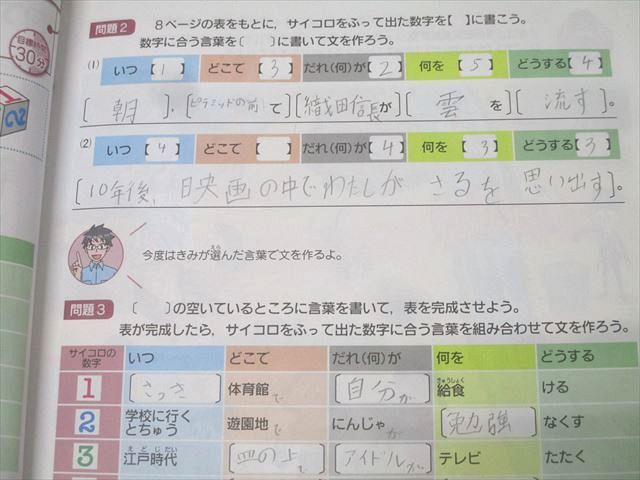 目標時間
30分
問題2 8ページの表をもとに，サイコロをふって出た数字を【 】に書こう。
数字に合う言葉を( )に書いて文を作ろう。
(1) いつ【1】 どこで【3】 だれ(何)が【2】 何を【5】 どうする【4】
[朝]、[ピラミッドの前]で][織田信長が][雲を][流す]。
(2) いつ【4】 どこで【 】 だれ(何)が【4】 何を【3】 どうする【3】
[10年後、映画の中でわたしがさるを思い出す]。
今度はきみが選んだ言葉で文を作るよ。
問題3 ( )の空いているところに言葉を書いて，表を完成させよう。
表が完成したら，サイコロをふって出た数字に合う言葉を組み合わせて文を作ろう。
サイコロの数字 いつ どこで だれ(何)が 何を どうする
1 [さっき] 体育館で [自分が] 給食 ける
2 学校に行くとちゅう 遊園地で にんじゃが [勉強] なくす
3 江戸時代 [皿の上で] [アイドルが] テレビ たたく